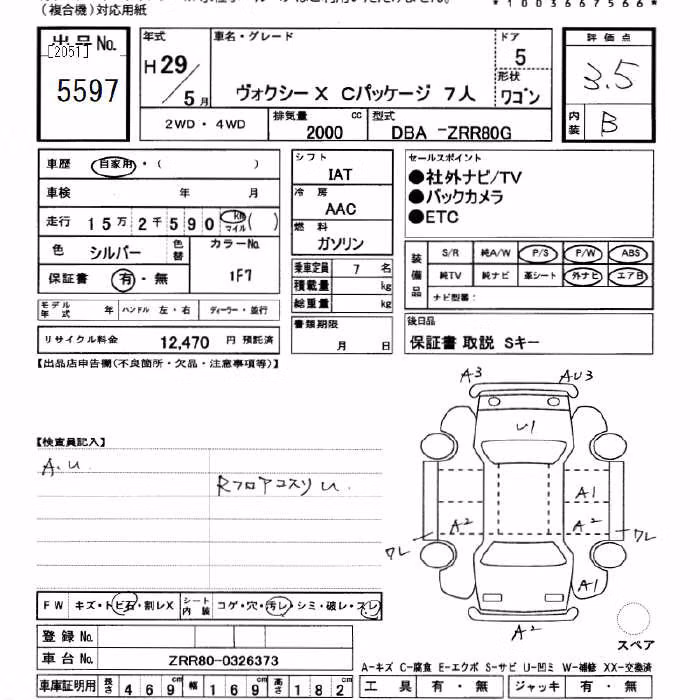 (複合機)対応用紙
*1003667566*
出品No.
[2051]
5597
年式
H 29/5月
車名・グレード
ヴォクシーX Cパッケージ 7人
ドア
5
形状
ワゴン
評価点
3.5
内装
B
2WD・4WD
排気量 2000 cc
型式 DBA -ZRR80G
車歴 自家用・( )
車検 年 月
走行 15万2千590 km マイル ( )
色 シルバー 色替
カラーNo. 1F7
保証書 有・無
シフト
IAT
冷房
AAC
燃料
ガソリン
乗車定員 7 名
積載量 kg
総重量 kg
セールスポイント
●社外ナビ/TV
●バックカメラ
●ETC
装備品
S/R 純A/W P/S P/W ABS
純TV 純ナビ 革シート 外ナビ エアB
ナビ型番:
モデル年式 年 ハンドル 左・右 ディーラー・並行
リサイクル料金 12,470 円 預託済
書類期限
月 日
後日品
保証書 取説 Sキー
【出品店申告欄(不良箇所・欠品・注意事項等)】
【検査員記入】
A.U
Rフロアコスリ U.
A3 AU3
U1
A1
A2 A2
ワレ ワレ
A1
A2
スペア
FW キズ・トビ石・割レX シート内装 コゲ・穴・汚レ・シミ・破レ・スレ
登録No.
車台No. ZRR80-0326373
A-キズ C-腐食 E-エクボ S-サビ U-凹ミ W-補修 XX-交換済
車庫証明用 長さ 469cm 幅 169cm 高さ 182cm
工具 有・無 ジャッキ 有・無